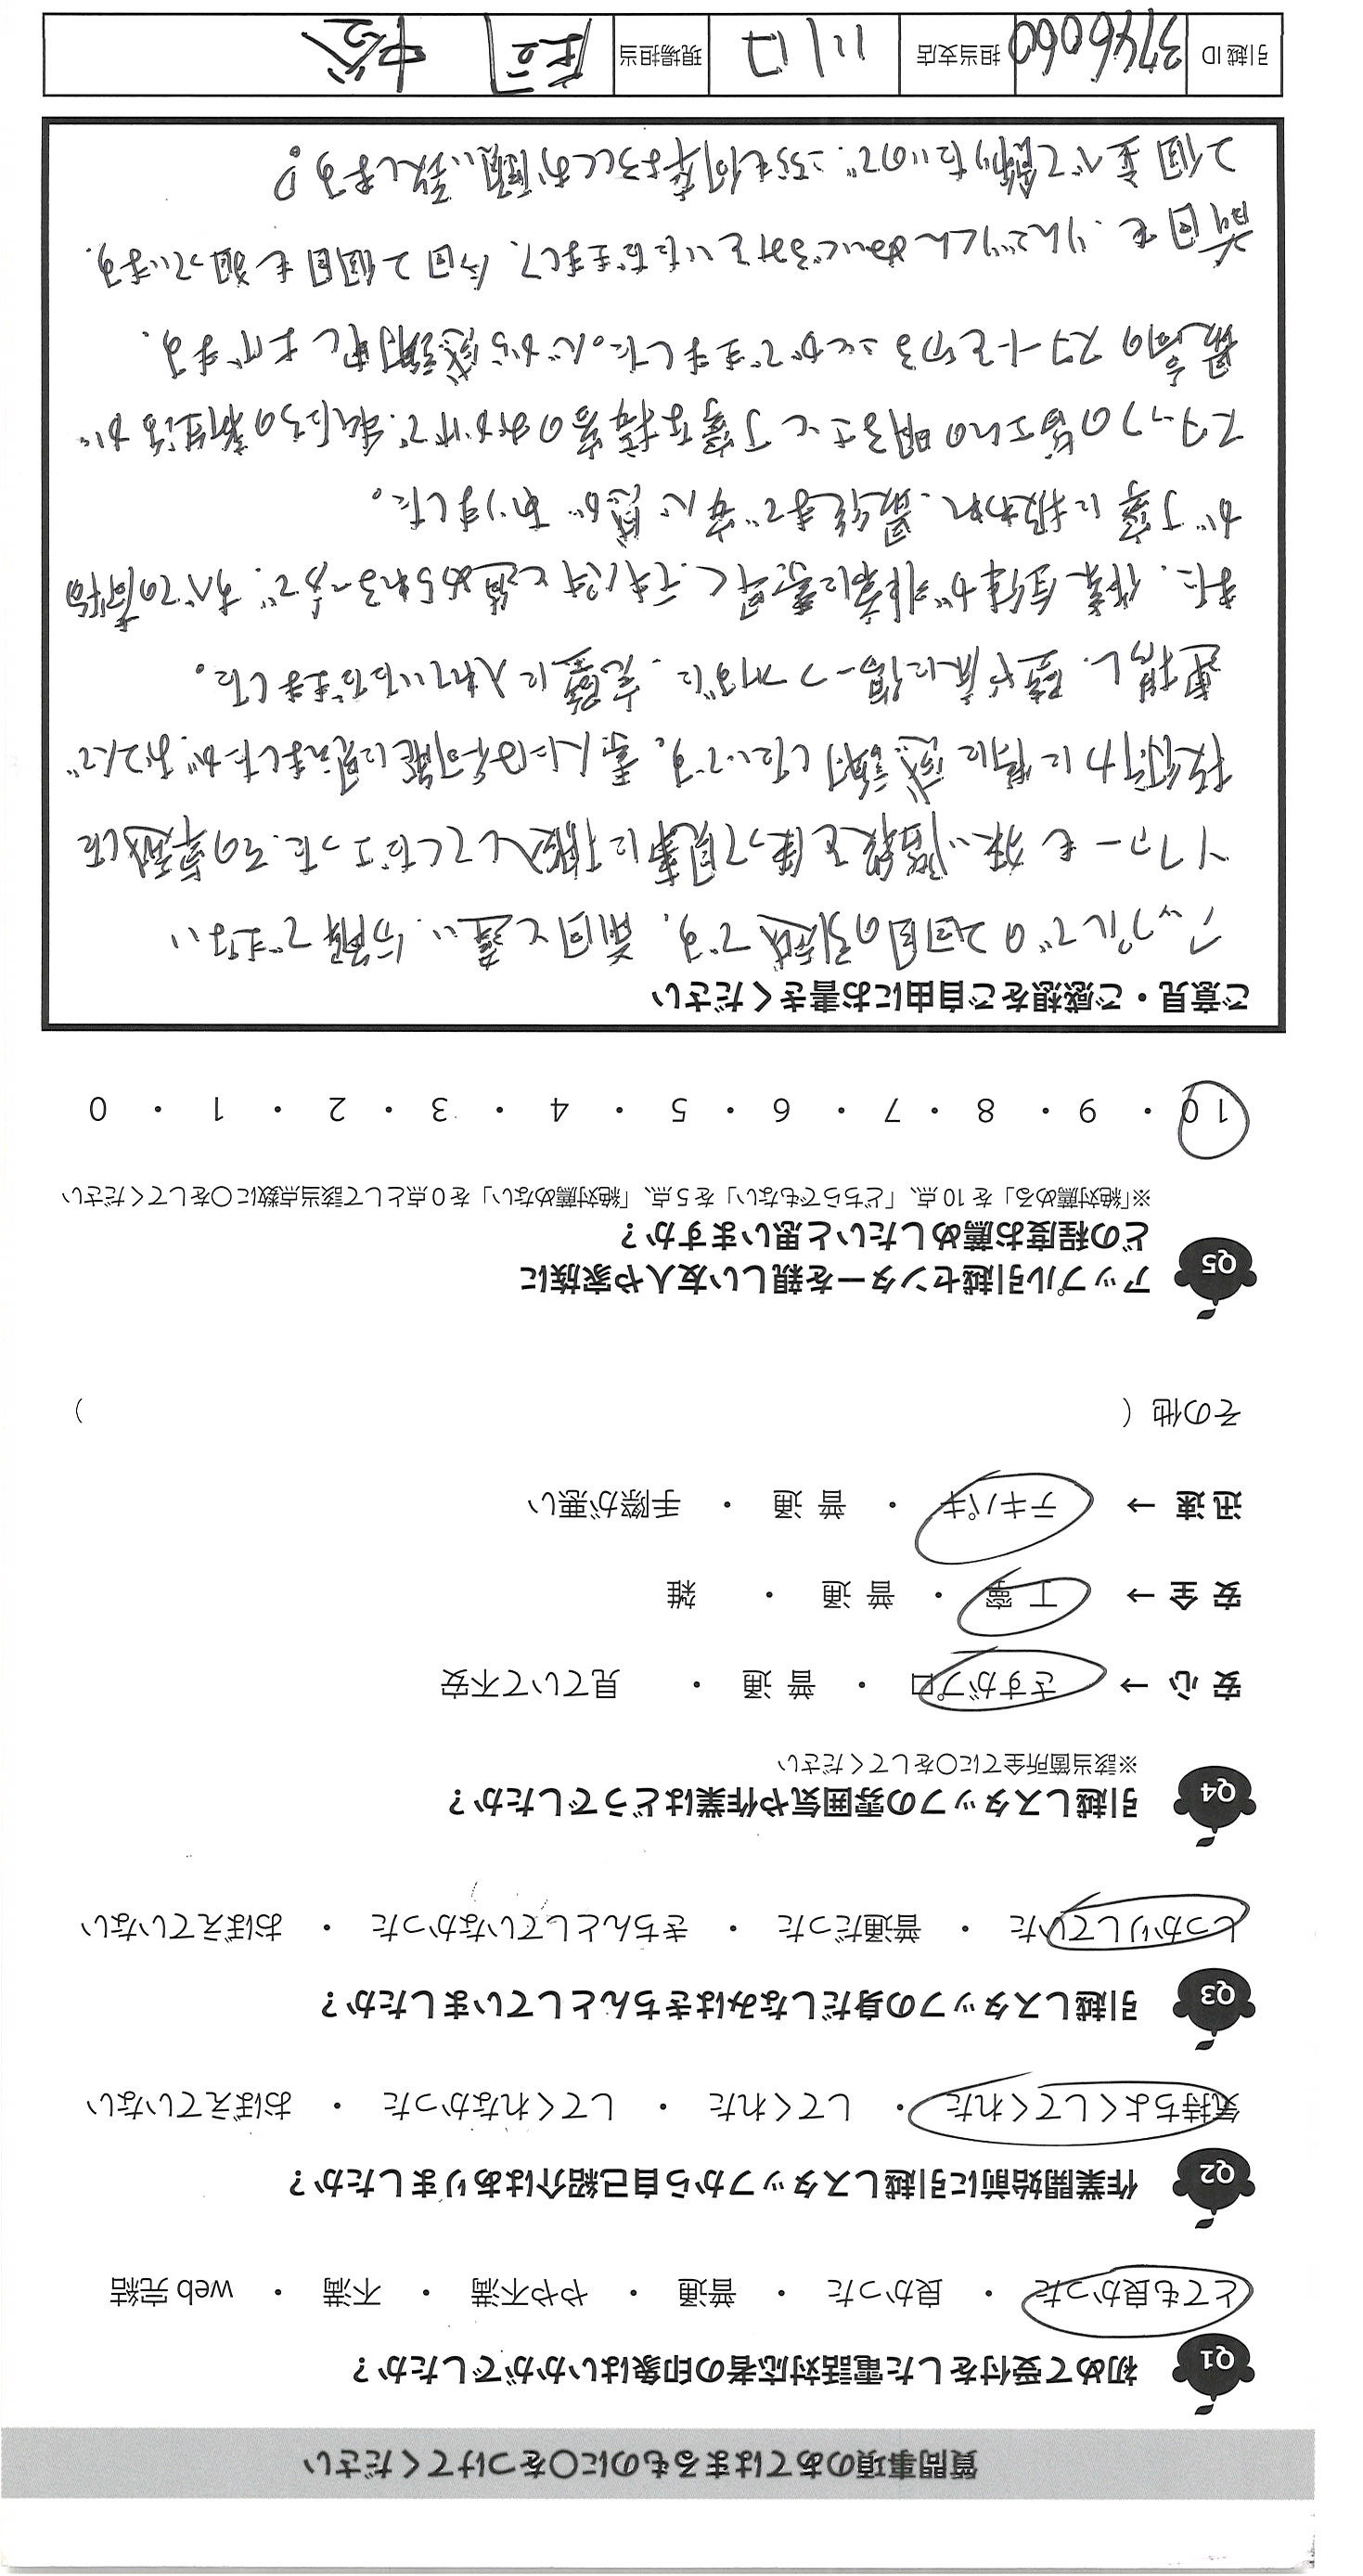 質問事項のあてはまるものに○をつけてください
Q1 初めて受付をした電話対応者の印象はいかがでしたか？
とても良かった ・ 良かった ・ 普通 ・ やや不満 ・ 不満 ・ web 完結
Q2 作業開始前に引越しスタッフから自己紹介はありましたか？
気持ちよくしてくれた ・ してくれた ・ してくれなかった ・ おぼえていない
Q3 引越しスタッフの身だしなみはきちんとしていましたか？
しっかりしていた ・ 普通だった ・ きちんとしていなかった ・ おぼえていない
Q4 引越しスタッフの雰囲気や作業はどうでしたか？
※該当箇所全てに○をしてください
安 心 → さすがプロ ・ 普 通 ・ 見ていて不安
安 全 → 丁 寧 ・ 普 通 ・ 雑
迅 速 → テキパキ ・ 普 通 ・ 手際が悪い
その他（ ）
Q5 アップル引越センターを親しい友人や家族に
どの程度お薦めしたいと思いますか？
※「絶対薦める」を 10 点、「どちらでもない」を 5 点、「絶対薦めない」を 0 点として該当点数に○をしてください
10 ・ 9 ・ 8 ・ 7 ・ 6 ・ 5 ・ 4 ・ 3 ・ 2 ・ 1 ・ 0
ご意見・ご感想をご自由にお書きください
アップルでの2回目の引越です。前回と違い、分解できない
ソファーも狭い階段を使って見事に搬入してくださった、その卓越した
技術力に特に感謝したいです。素人には不可能に見えましたが、おふたりで
運搬し、壁や床に傷一つ付けずに、完璧に入れていただきました。
また、作業全体が非常に素早く、テキパキと進められる一方で、すべての荷物
が丁寧に扱われ、最後まで安心感がありました。
スタッフの皆さんの明るさと丁寧な接客のおかげで、私たちの新生活が
最高のスタートを切ることができました。心から感謝申し上げます。
前回も、りんごりくんぬいぐるみをいただきまして、今回2個目も狙っています。
2個並べて飾りたいので、こちらも何卒よろしくお願い致します？
引越 ID 3746060 担当支店 川口 現場担当 庄司 中谷